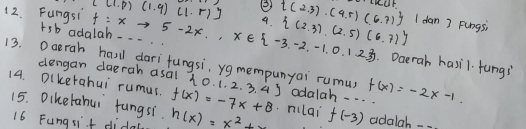 {(1.p) (1.q) (1.r)}
③ {(2,3). (4,5) (6.7)} 1 dan 3 Fungsi
12. Fungsi f : x → 5 - 2x.. x ∈ {-3.-2.-1.0.1.2.3}. Daerah hasil. fungsi
4. {(2.3). (2.5) (6.7)}
tsb adalah ----
13. Daerah hasil dari fungsi, yg mempunyai rumus f(x) = -2x -1.
dengan daerah asal {0.1.2.3.4} adalah ----
14. Diketahui rumus. f(x) = -7x + 8. nilai f(-3) adalah ---
15. Diketahui fungsi. h(x) = x² +
16 Fungsi f